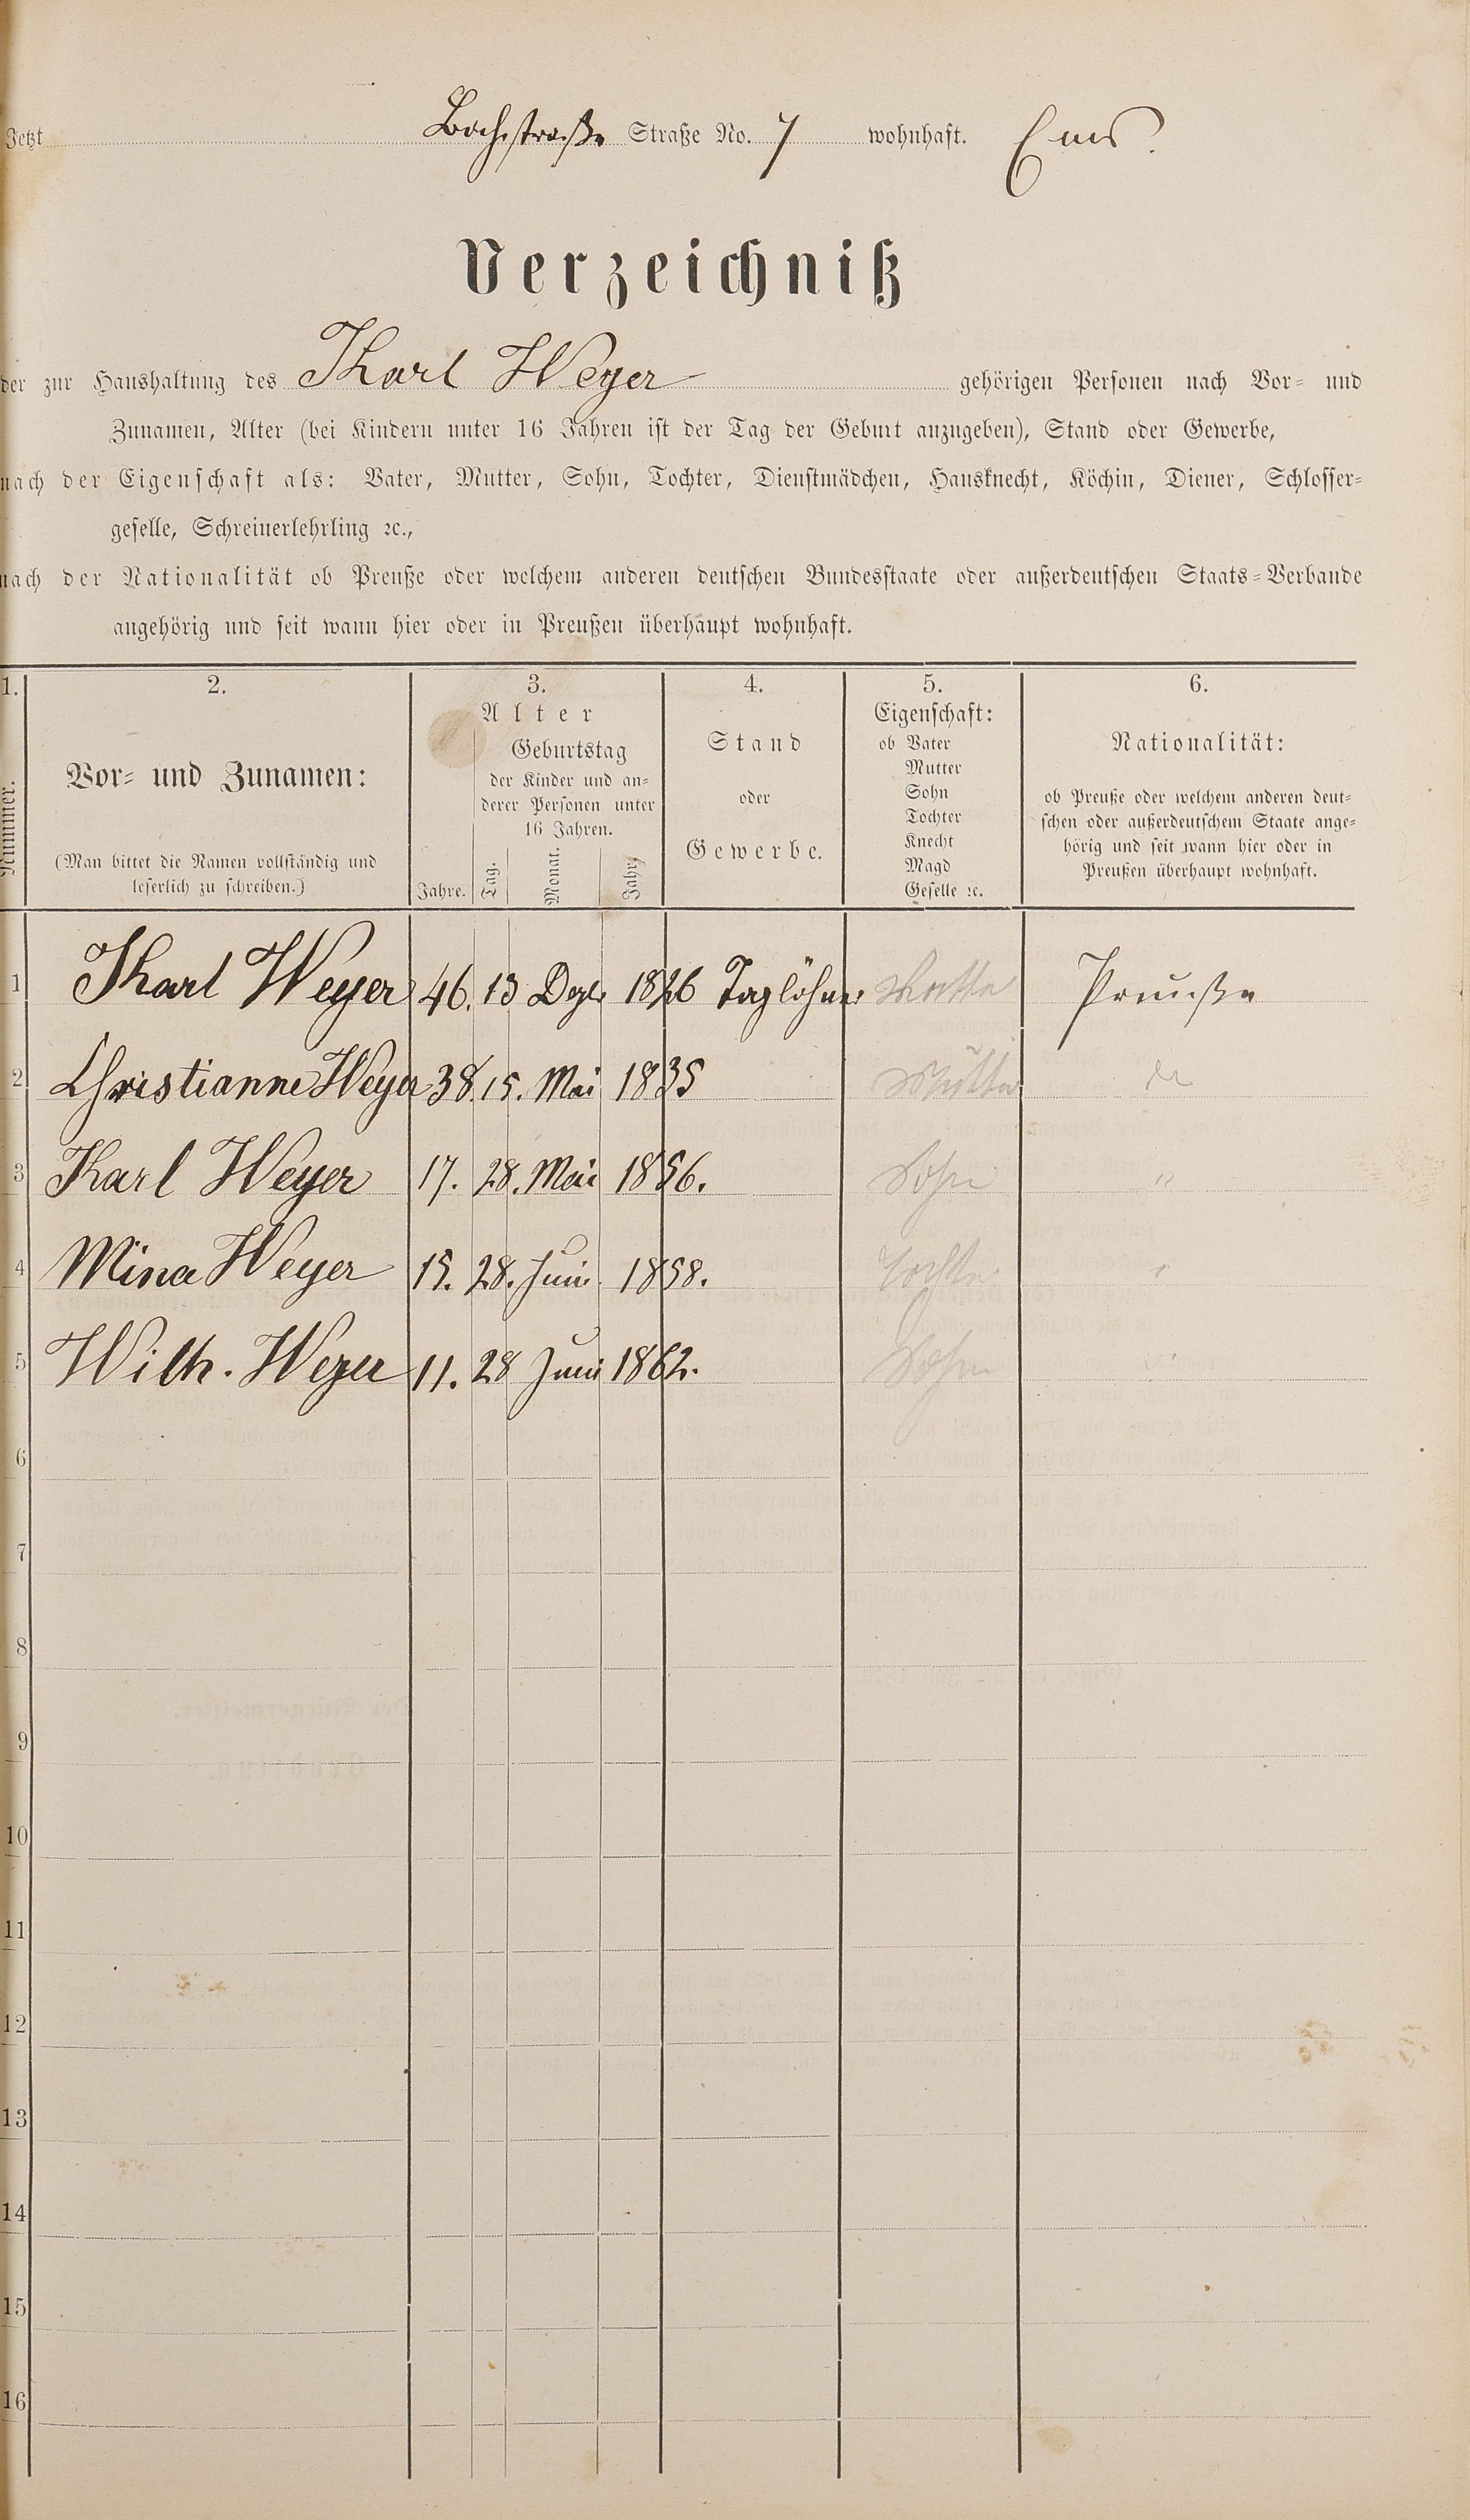 Jetzt Bachstraße Straße No. 7 wohnhaft. Ems.
Verzeichniß
der zur Haushaltung des Karl Weyer gehörigen Personen nach Vor- und
Zunamen, Alter (bei Kindern unter 16 Jahren ist der Tag der Geburt anzugeben), Stand oder Gewerbe,
nach der Eigenschaft als: Vater, Mutter, Sohn, Tochter, Dienstmädchen, Hausknecht, Köchin, Diener, Schlosser-
geselle, Schreinerlehrling ꝛc.,
nach der Nationalität ob Preuße oder welchem anderen deutschen Bundesstaate oder außerdeutschen Staats-Verbande
angehörig und seit wann hier oder in Preußen überhaupt wohnhaft.
1. 2. 3. 4. 5. 6.
Nummer.
Vor- und Zunamen:
(Man bittet die Namen vollständig und
leserlich zu schreiben.)
Alter
Jahre.
Geburtstag
der Kinder und an-
derer Personen unter
16 Jahren.
Tag. Monat. Jahr.
Stand
oder
Gewerbe.
Eigenschaft:
ob Vater
Mutter
Sohn
Tochter
Knecht
Magd
Geselle ꝛc.
Nationalität:
ob Preuße oder welchem anderen deut-
schen oder außerdeutschem Staate ange-
hörig und seit wann hier oder in
Preußen überhaupt wohnhaft.
1 Karl Weyer 46. 13 Dez. 1826 Taglöhner Preuße
2 Christianne Weyer 38. 15. Mai 1835 Mutter
3 Karl Weyer 17. 28. Mai 1856. Sohn "
4 Mina Weyer 15. 28. Juni 1858. Tochter "
5 Wilh. Weyer 11. 28 Juni 1862. Sohn "
6
7
8
9
10
11
12
13
14
15
16